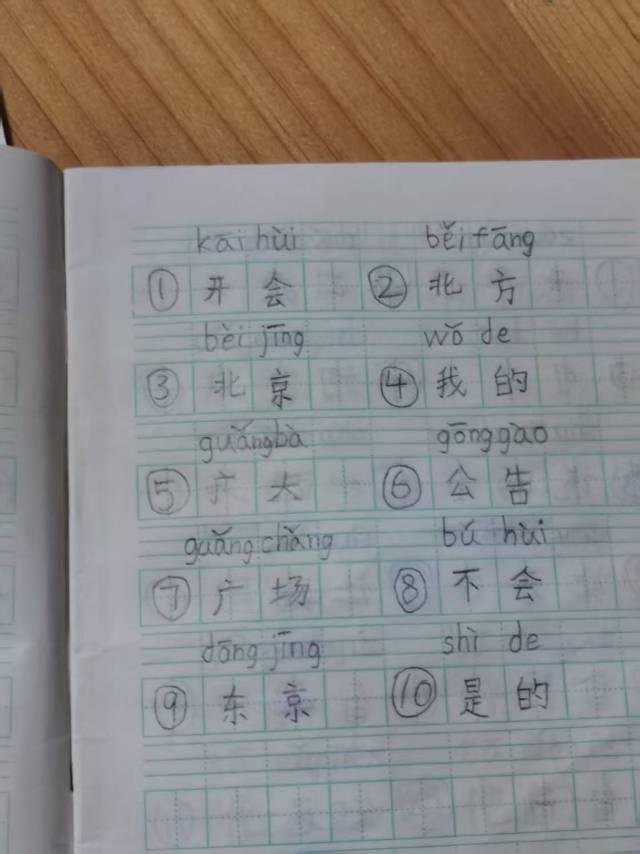 kāi hùi běi fāng
① 开 会 ② 北 方
bèi jīng wǒ de
③ 北 京 ④ 我 的
guǎngbà gōng gào
⑤ 广 大 ⑥ 公 告
guǎng chǎng bú hùi
⑦ 广 场 ⑧ 不 会
dōng jīng shì de
⑨ 东 京 ⑩ 是 的